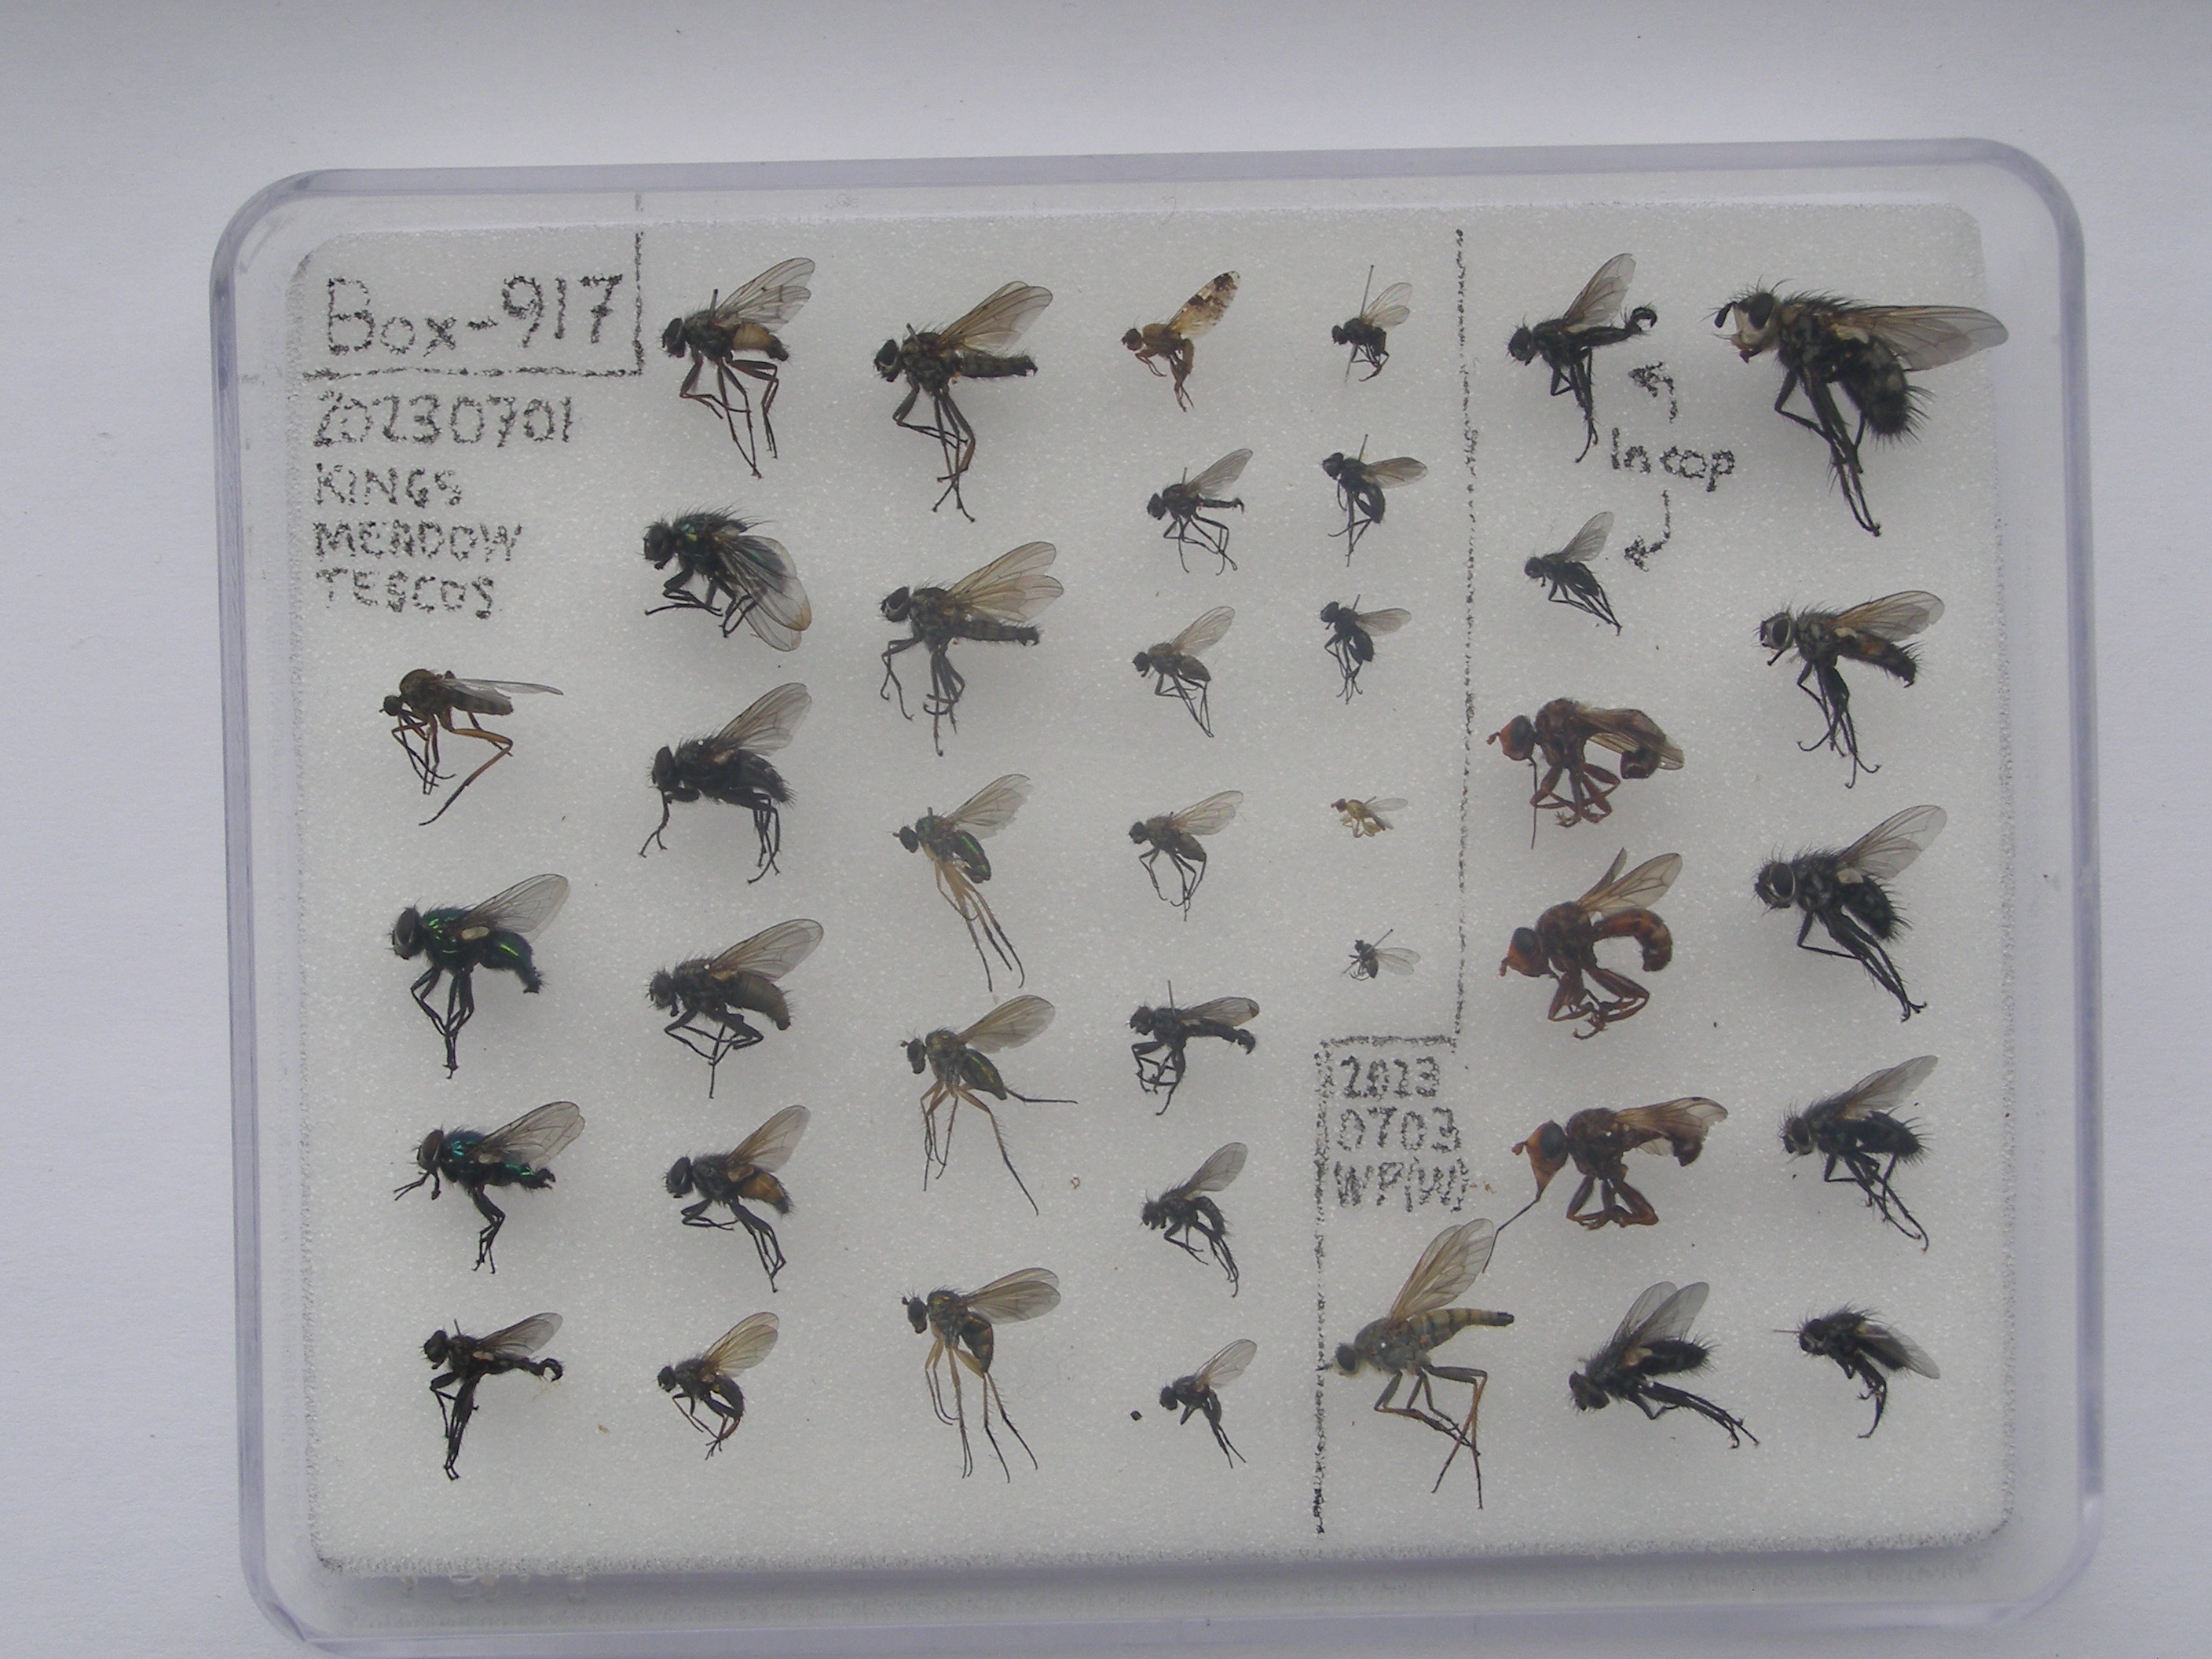 Box-917
20230701
KINGS
MEADOW
TESCOS
In cop
2023
0703